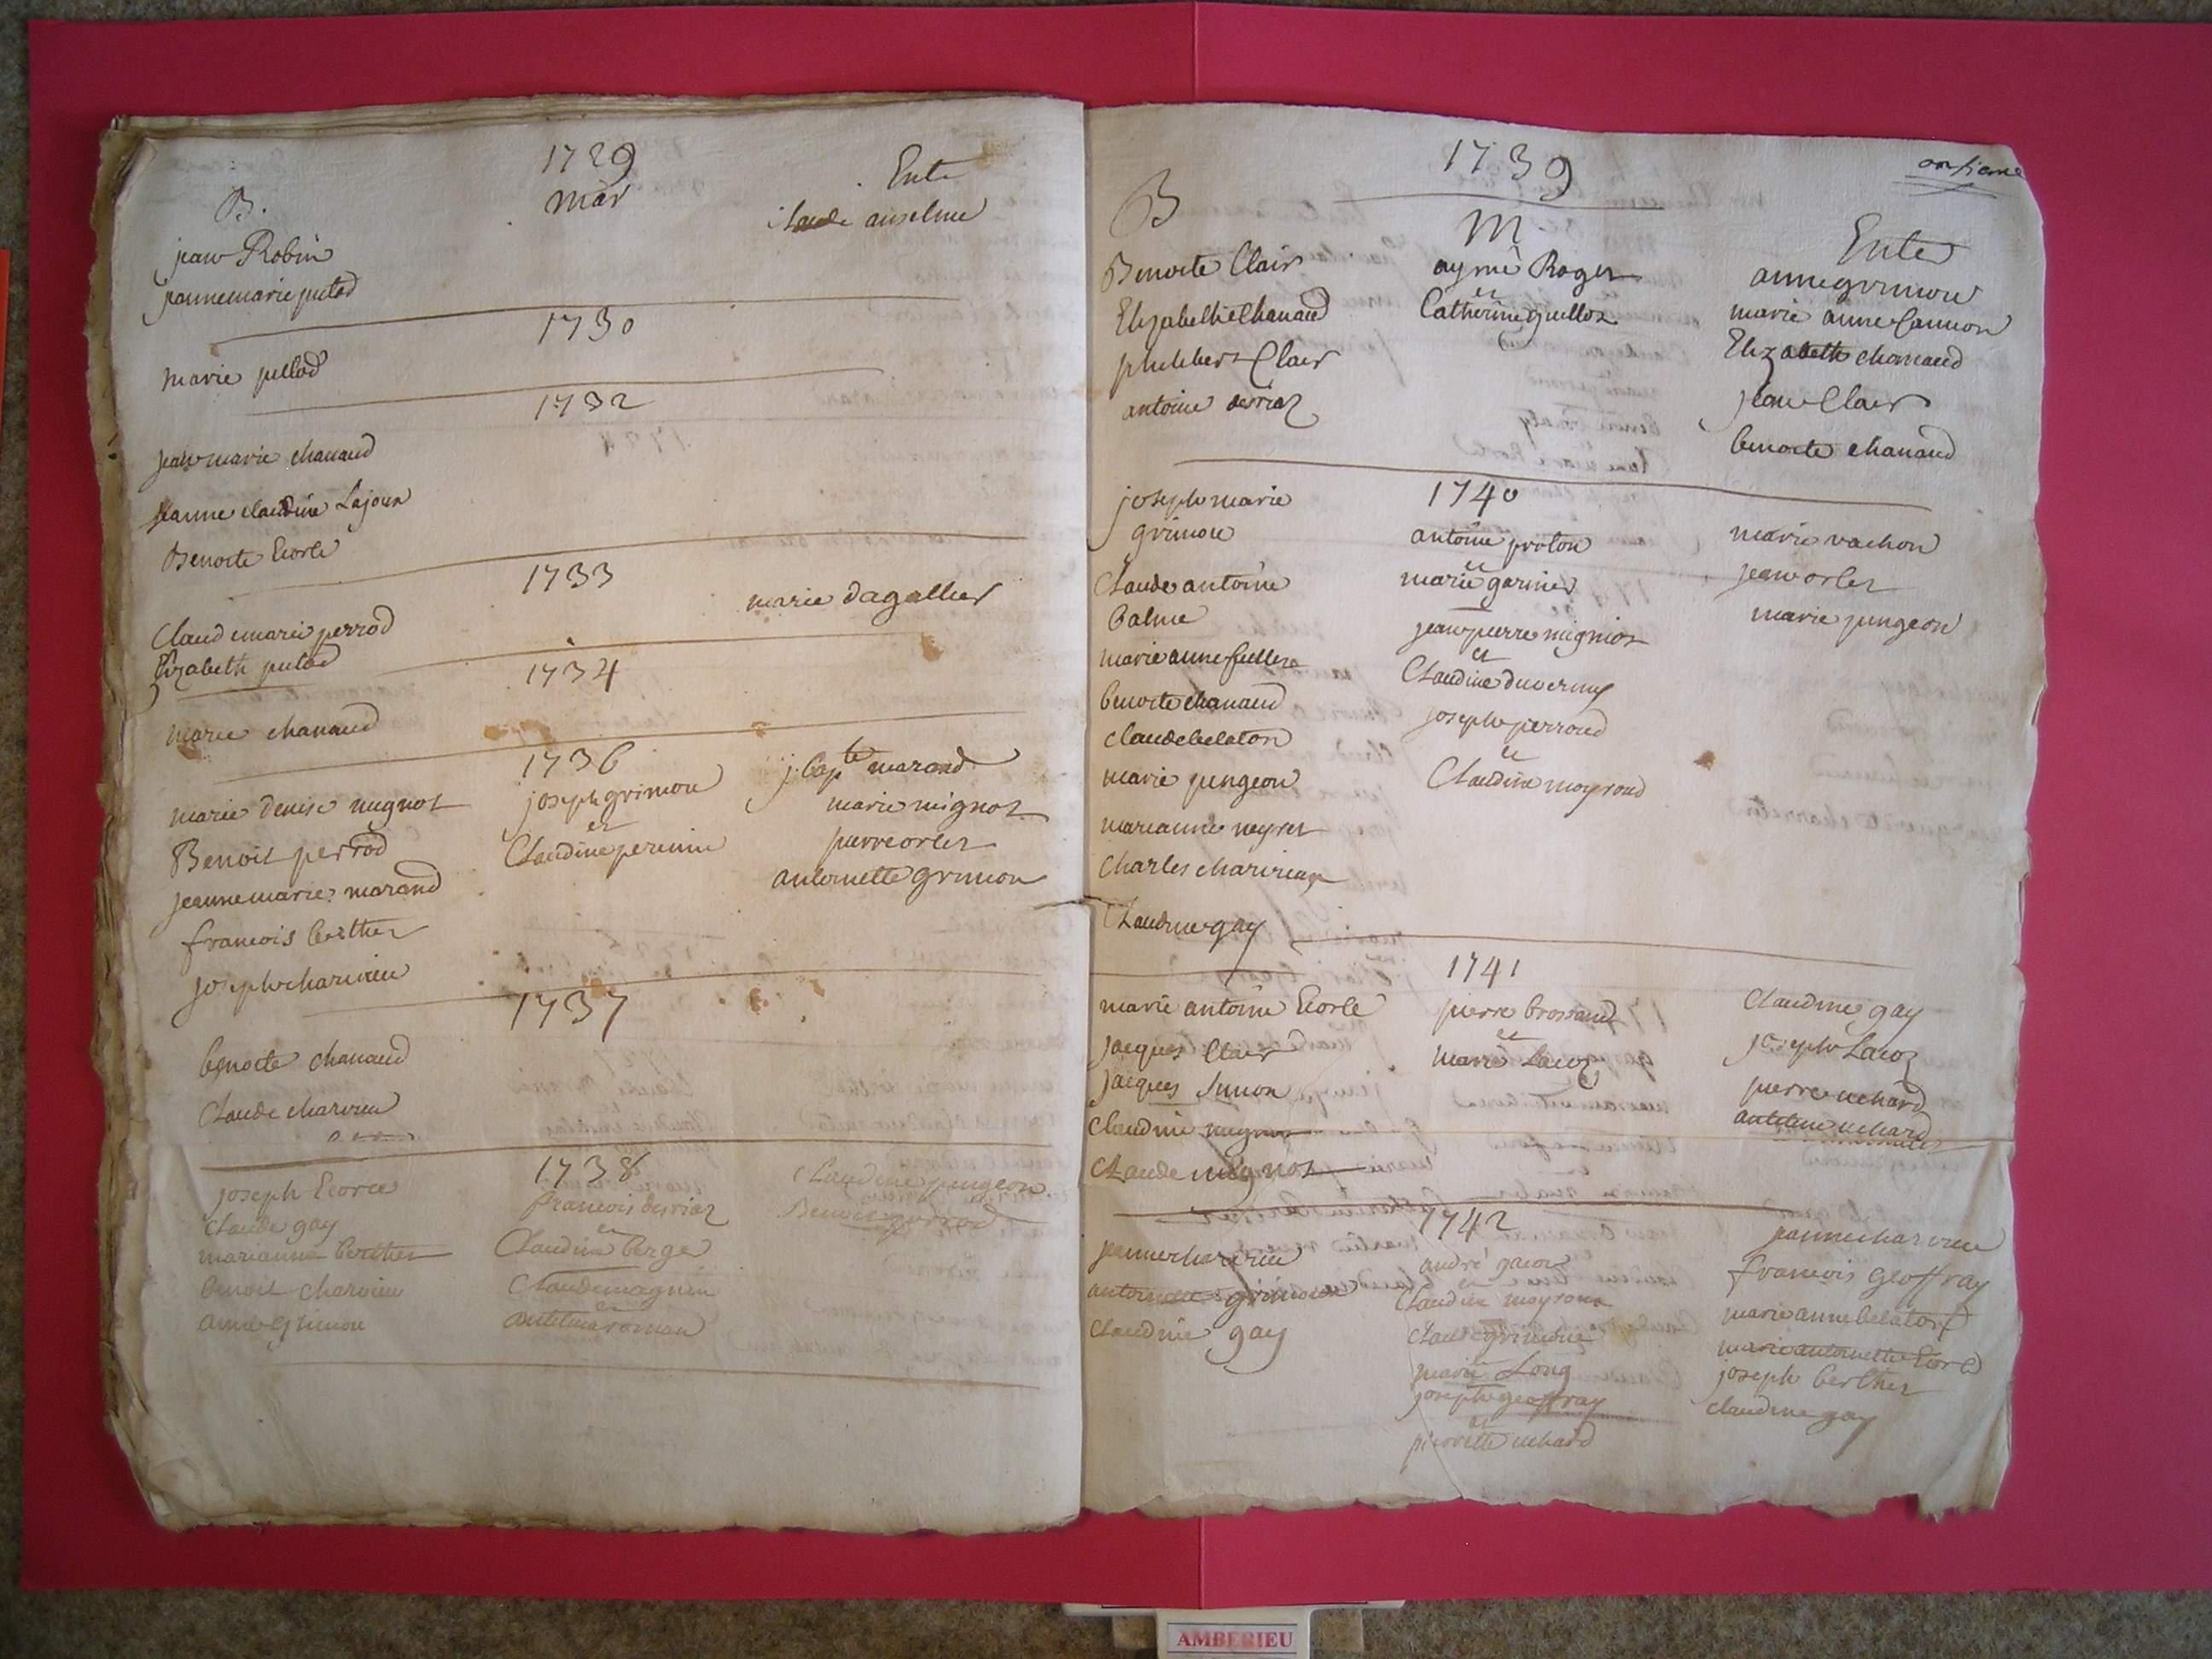 1729
B.
Mar
Ente
jean Robin
Claude anselme
jeannemarie putod
1730
marie putod
1732
jean marie chanaud
jeanne claudine Lajoux
Benoite Ecorle
1733
Claude marie perrod
marie dagallier
Elizabeth putod
1734
marie chanaud
1736
marie denise mignot
joseph grimon
j. bapte marand
Benoit perrod
et
marie mignot
jeannemarie marand
Claudine perenin
pierre orlet
francois berthet
antoinette grimon
joseph charvieu
1737
benoite chanaud
Claude charvieu
1738
joseph Ecorce
francois desriaz
Claudine pungeon
Claude gay
et
Benoit perrod
marianne berthet
Claudine berge
benoit charvieu
Claude magnin
anne grimon
et
roman
onzieme
1739
B
M
Ente
Benoite Clair
aymé Roger
anne grimon
Elizabethe Chanaud
et
marie anne Cannon
philibert Clair
Catherine guillot
Elizabeth chanaud
antoine desriaz
jean Clair
benoite chanaud
1740
joseph marie
grimon
antoine proton
marie vachon
Claude antoine
et
jean orlet
balme
marie garnier
marie pungeon
marie anne
jean pierre mignot
benoite chanaud
et
claude belaton
Claudine duvernay
marie pungeon
joseph perroud
marianne neyret
et
Charles charvieux
Claudine moyroud
Claudine gay
1741
marie antoine Ecorle
pierre brossaud
Claudine gay
jacques Clair
et
joseph Lacoz
jacques Simon
marie Lacoz
pierre uchard
Claudine mignot
uchard
Claude mignot
1742
jeanne charvieu
andré gacon
jeanne charvieu
antoinette grimon
et
francois geoffray
Claudine gay
Claudine moyroux
marie anne belaton
Claude grimone
marie antoinette Ecorle
et
joseph berthet
marie Long
claudine gay
joseph geoffray
et
pierrette uchard
AMBERIEU